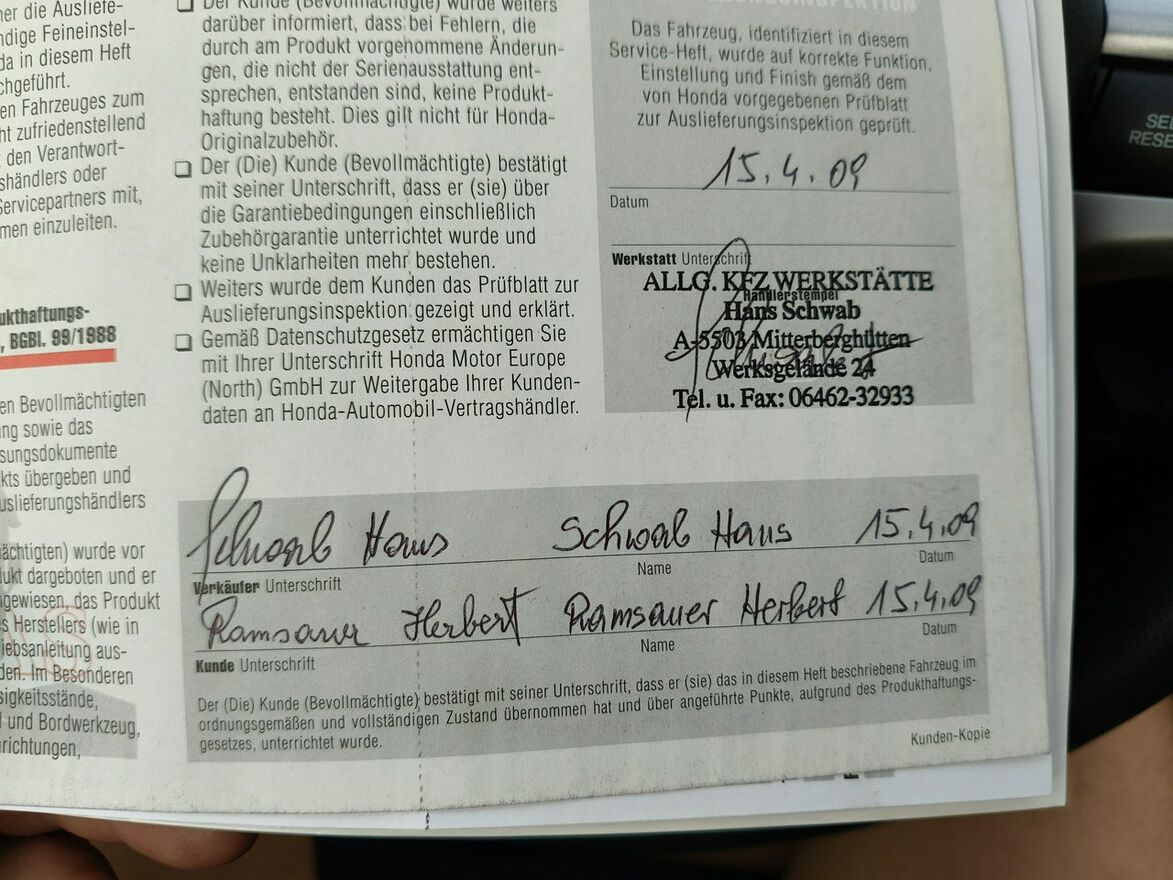 er die Ausliefe-
ndige Feineinstel-
da in diesem Heft
chgeführt.
en Fahrzeuges zum
ht zufriedenstellend
den Verantwort-
shändlers oder
Servicepartners mit,
men einzuleiten.
ukthaftungs-
, BGBl. 99/1988
en Bevollmächtigten
ng sowie das
sungsdokumente
kts übergeben und
uslieferungshändlers
ächtigten) wurde vor
dukt dargeboten und er
ngewiesen, das Produkt
s Herstellers (wie in
iebsanleitung aus-
den. Im Besonderen
sigkeitsstände,
l und Bordwerkzeug,
richtungen,
❏ Der Kunde (Bevollmächtigte) wurde weiters
darüber informiert, dass bei Fehlern, die
durch am Produkt vorgenommene Änderun-
gen, die nicht der Serienausstattung ent-
sprechen, entstanden sind, keine Produkt-
haftung besteht. Dies gilt nicht für Honda-
Originalzubehör.
❏ Der (Die) Kunde (Bevollmächtigte) bestätigt
mit seiner Unterschrift, dass er (sie) über
die Garantiebedingungen einschließlich
Zubehörgarantie unterrichtet wurde und
keine Unklarheiten mehr bestehen.
❏ Weiters wurde dem Kunden das Prüfblatt zur
Auslieferungsinspektion gezeigt und erklärt.
❏ Gemäß Datenschutzgesetz ermächtigen Sie
mit Ihrer Unterschrift Honda Motor Europe
(North) GmbH zur Weitergabe Ihrer Kunden-
daten an Honda-Automobil-Vertragshändler.
Das Fahrzeug, identifiziert in diesem
Service-Heft, wurde auf korrekte Funktion,
Einstellung und Finish gemäß dem
von Honda vorgegebenen Prüfblatt
zur Auslieferungsinspektion geprüft.
15.4.09
Datum
Werkstatt Unterschrift
ALLG. KFZ WERKSTÄTTE
Händlerstempel
Hans Schwab
A-5503 Mitterberghütten
Werksgelände 24
Tel. u. Fax: 06462-32933
Schwab Hans Schwab Hans 15.4.09
Verkäufer Unterschrift Name Datum
Ramsauer Herbert Ramsauer Herbert 15.4.09
Kunde Unterschrift Name Datum
Der (Die) Kunde (Bevollmächtigte) bestätigt mit seiner Unterschrift, dass er (sie) das in diesem Heft beschriebene Fahrzeug im
ordnungsgemäßen und vollständigen Zustand übernommen hat und über angeführte Punkte, aufgrund des Produkthaftungs-
gesetzes, unterrichtet wurde.
Kunden-Kopie